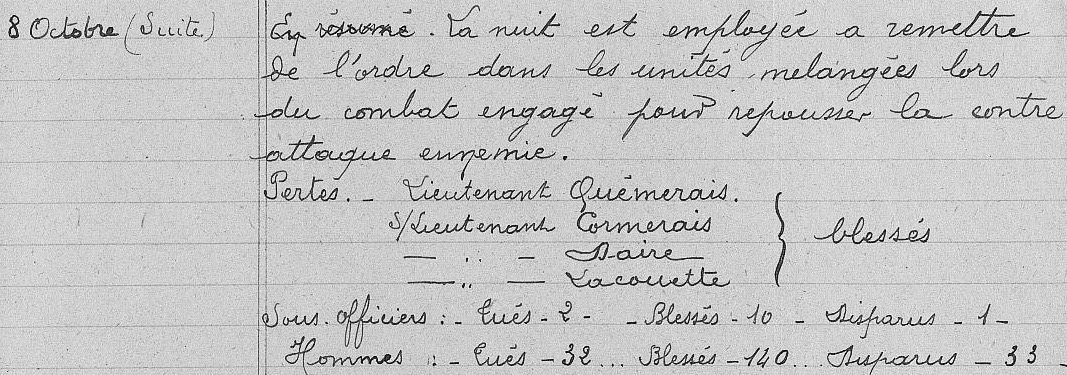 8 Octobre (Suite) En résumé. La nuit est employée a remettre
de l'ordre dans les unités melangées lors
du combat engagé pour repousser la contre
attaque ennemie.
Pertes. _ Lieutenant Quémerais.
S/Lieutenant Cormerais } blessés
— .. — Daire
— .. — Lacouette
Sous. officiers : - Tués - 2 - - Blessés - 10 - Disparus - 1 -
Hommes : - Tués - 32 ... Blessés - 140 ... Disparus - 33 -